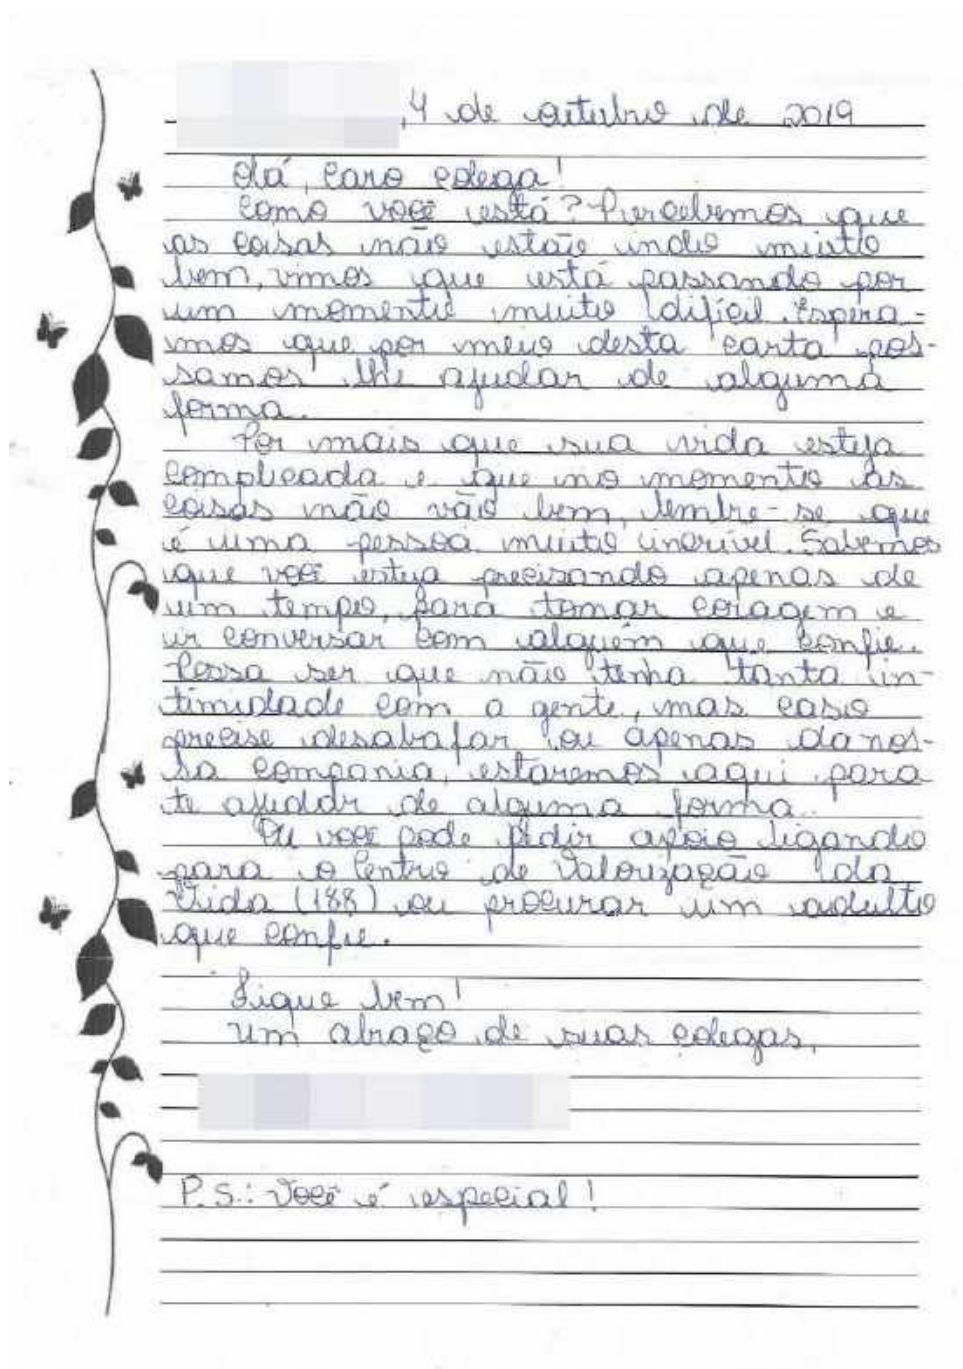 , 4 de outubro de 2019
Olá, caro colega!
Como você está? Percebemos que
as coisas não estão indo muito
bem, vimos que está passando por
um momento muito difícil. Espera-
mos que por meio desta carta pos-
samos lhe ajudar de alguma
forma.
Por mais que sua vida esteja
complicada e que no momento as
coisas não vão bem, lembre-se que
é uma pessoa muito incrível. Sabemos
que você esteja precisando apenas de
um tempo, para tomar coragem e
ir conversar com alguém que confie.
Possa ser que não tenha tanta in-
timidade com a gente, mas caso
precise desabafar ou apenas da nos-
sa compania, estaremos aqui para
te ajudar de alguma forma.
Ou você pode pedir apoio ligando
para o Centro de Valorização da
Vida (188) ou procurar um adulto
que confie.
Fique bem!
Um abraço de suas colegas,
P.S.: Você é especial!